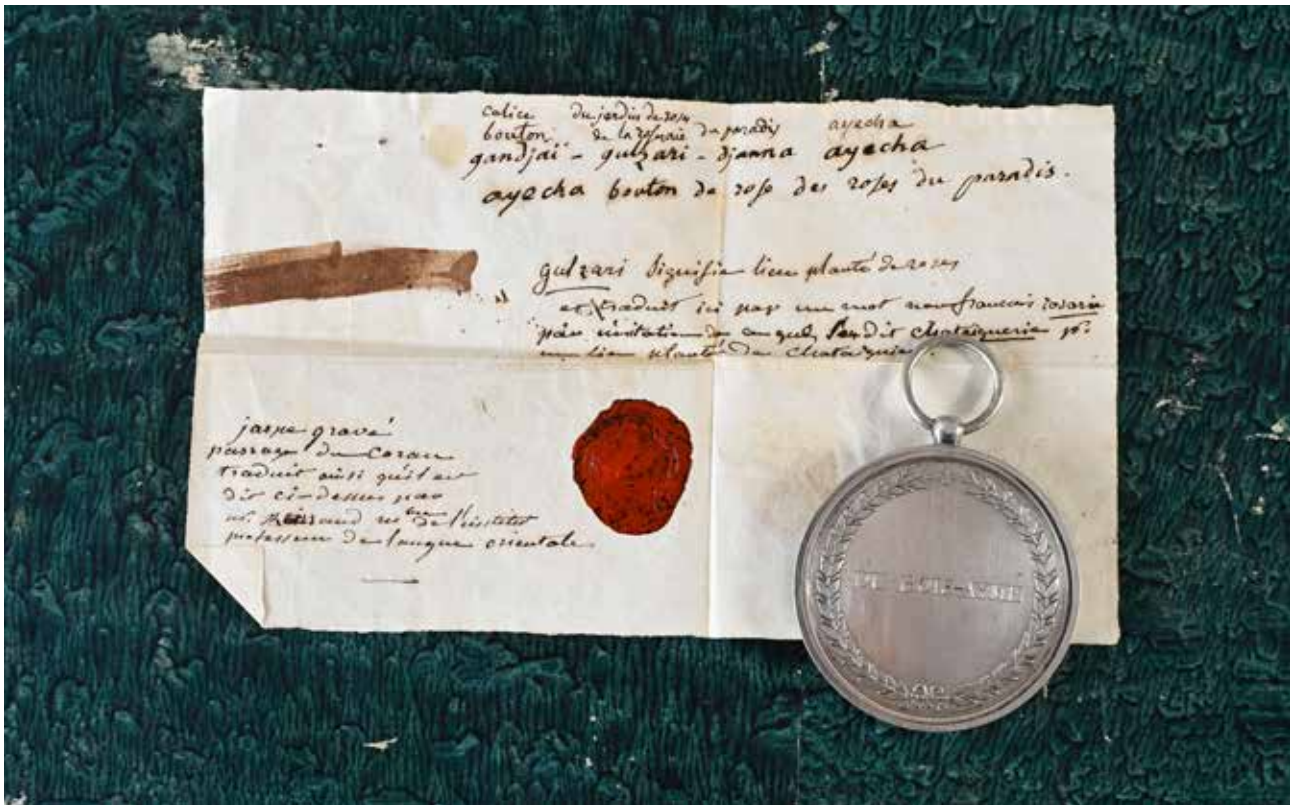 calice du jardin de rose
bouton de la roseraie du paradis ayecha
gandjaï - gulzari - djanna ayecha
ayecha bouton de rose des roses du paradis.
gulzari signifie lieu planté de roses
et traduit ici par un mot neuf francais rosarie
par imitation de ce quel l'on dit chataigneric pr.
un lieu planté de chataigniers.
jaspe gravé
passage du Coran
traduit ainsi qu'il est
dit ci-dessus par
m. mbre de l'institut
professeur de langue orientale
DU BOIS-AYMÉ